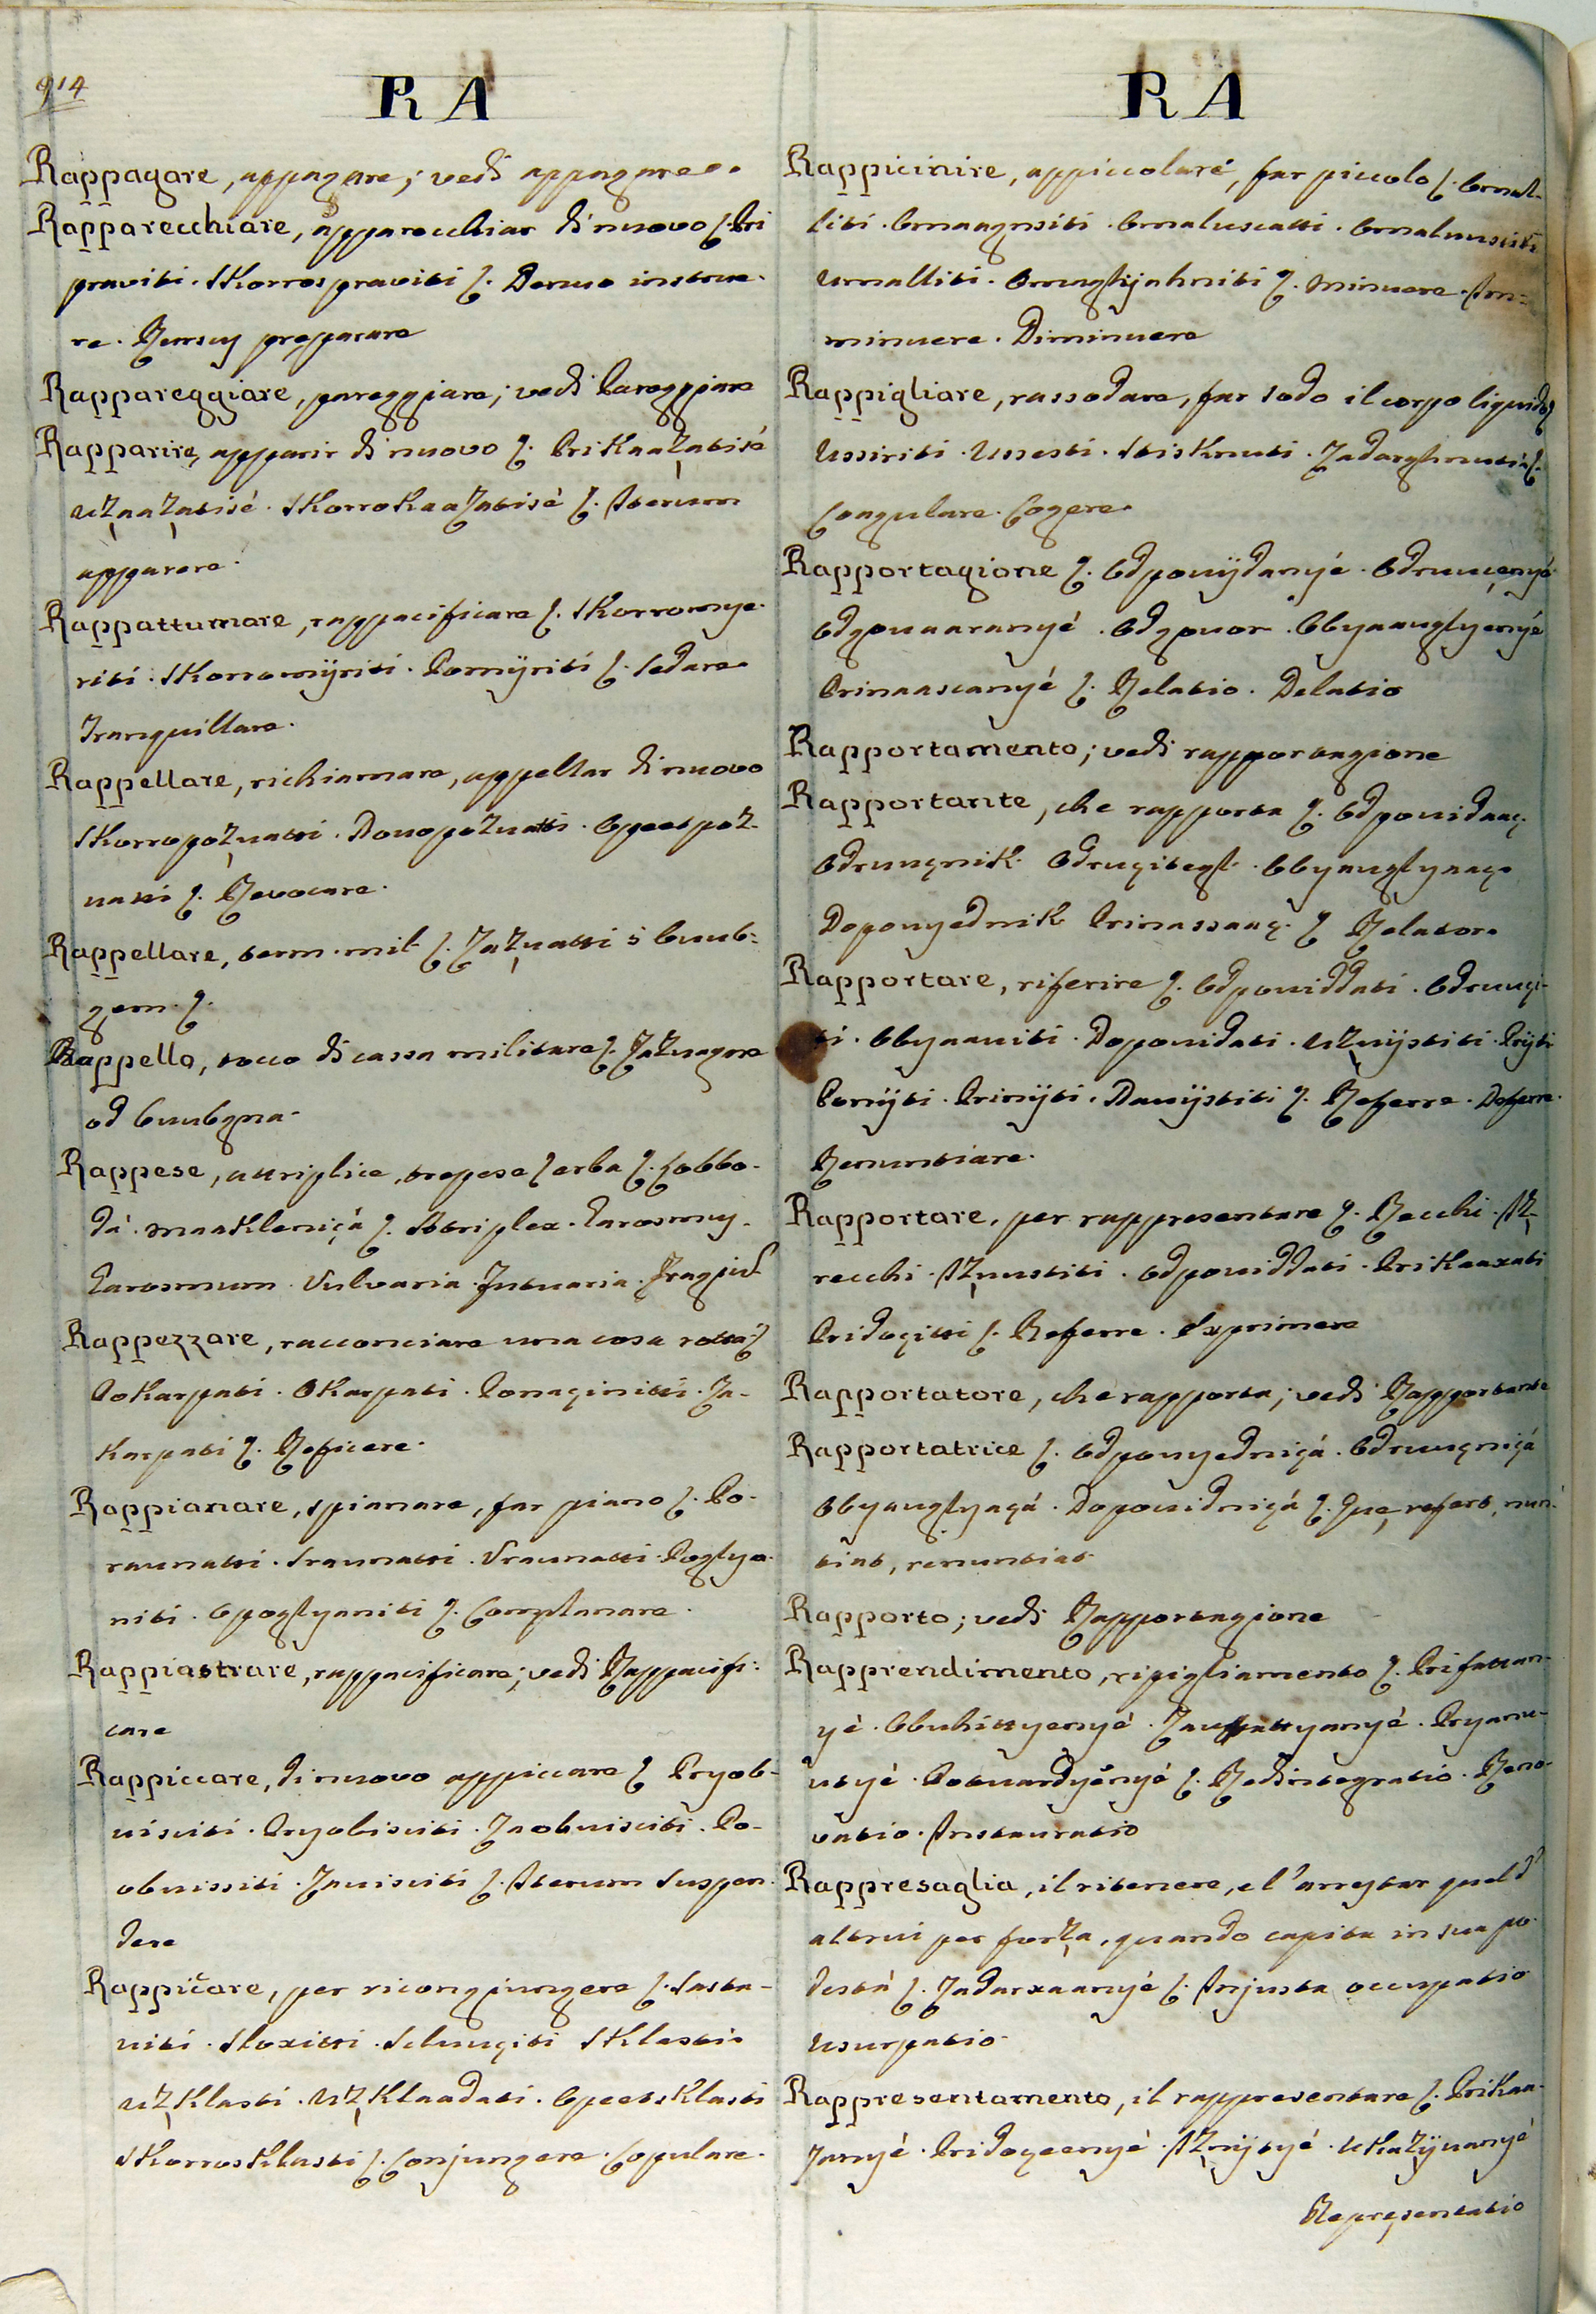 914
RA
Rappagare, appagare; vedi appagare.
Rapparecchiare, apparecchiar di nuovo ſ. Pri
praviti. Skorros praviti ſ. Denuo instrue-
re. Rursus preparare
Rappareggiare, pareggiare; vedi Pareggiare
Rapparire, apparir di nuovo ſ. Prikaaz̧atisé
uz̧aaz̧atisé. Skorrokaazatisé ſ. Iterum
apparere.
Rappattumare, rappacificare ſ. Skorromye-
riti. Skorromÿriti. Pomÿriti ſ. Sedare.
Tranquillare.
Rappellare, richiamare, appellar di nuovo
Skorropoz̧uatti. Donopozuatti. Opeetpoz-
uatti ſ. Revocare.
Rappellare, term. mil ſ. Zaz̧uatti s' buub-
gnem. ſ.
Rappello, tocco di cassa militare ſ. Zazuagne
od buubgna.
Rappese, attriplice, trepese ſ erba ſ. Lobbo-
dá. maakleniçá ſ. Atriplex. Garosmus.
Garosmum. Vulvaria.
Rappezzare, racconciare una cosa rotta ſ.
Pokarpati. Okarpati. Ponaçinitti. Za-
karpati ſ. Reficere.
Rappianare, spianare, far piano ſ. Po-
raunatti. Sraunatti. Uraunatti. Poglya-
niti. Opoglyaniti ſ. Complanare.
Rappiastrare, rappacificare; vedi Rappacifi:
care
Rappiccare, di nuovo appiccare ſ Pryob-
uisciti. Pryobisciti. Zaobuisciti. Po-
obuissiti. Zauisciti ſ. Iterum suspen-
dere
Rappiccare, per ricongiungere ſ. Sasta-
uiti. Sloxitti. Scluuçiti Sklasti.
uz̧klasti. uz̧klaadati. Opeetsklasti
Skorrosklasti ſ. Conjungere. Copulare.
RA
Rappicinire, appiccolare, far piccolo ſ. Omal-
liti. Omaagnsiti. Omaluscatti. Omaluusciti
Umalliti. ſ. Minuere. Im=
minuere. Diminuere
Rappigliare, rassodare, far sodo il corpo liquido ſ
Ussiriti. Ussesti. Stisknuti. Zadarghnuti ſ.
Coagulare. Cogere.
Rapportagione ſ. Odpouÿdanyé. Odruuçenyé
Odgouaaranyé. Odgouor. Obyaauglyenyé
Prinaascanyé ſ. Relatio. Delatio
Rapportamento; vedi rapportagione
Rapportante, che rapporta ſ. Odpouidaaç.
Odruuçnik. Odruçitegl. Obyauglyaaç.
Dopouyednik Prinassaaç. ſ Relator.
Rapportare, riferire ſ. Odpouiddati. Odruuçi-
ti. Obyaauiti. Dopouidati. uz̧uÿstiti. Prÿti
Ponÿti. Prinÿti. Dauÿstiti ſ. Referre. Deferre.
Renuntiare.
Rapportare, per rappresentare ſ. Recchi. Iz̧-
recchi. Iz̧uustiti. Odpouiddati. Prikaaxati
Pridoçitti ſ. Referre. Exprimere
Rapportatore, che rapporta; vedi Rapportante
Rapportatrice ſ. Odpouyedniçá. Odruuçniçá
Obyauglyaçá. Dopouidniçá ſ. Que refert, nun-
tiat, renuntiat
Rapporto; vedi Rapportagione
Rapprendimento, ripigliamento ſ. Prifattan-
yé. Obuhittyenyé. Pryamu-
utyé. Potuardyényé ſ. Redintegratio. Reno-
vatio. Instauratio
Rappresaglia, il ritenere, e l'arrestar quel d'
altrui per forz̧a, quando capita in sua po-
destá ſ. Zadarxaanyé ſ. Injusta occupatio
Usurpatio.
Rappresentamento, il rappresentare ſ. Prikaa-
zanyé. Pridoçeenyé. Iz̧nÿtyé. Ukaz̧ÿuanyé
Repręsentatio